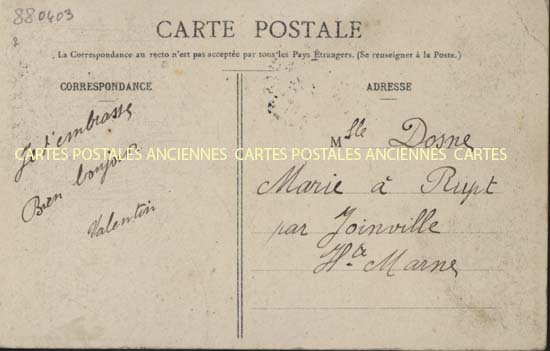 880403
CARTE POSTALE
La Correspondance au recto n'est pas acceptée par tous les Pays Étrangers. (Se renseigner à la Poste.)
CORRESPONDANCE
Je t'embrasse
Bien bonjour
Valentin
ADRESSE
Mlle Dosne
Marie à Rupt
par Joinville
Hte Marne
CARTES POSTALES ANCIENNES CARTES POSTALES ANCIENNES CARTES